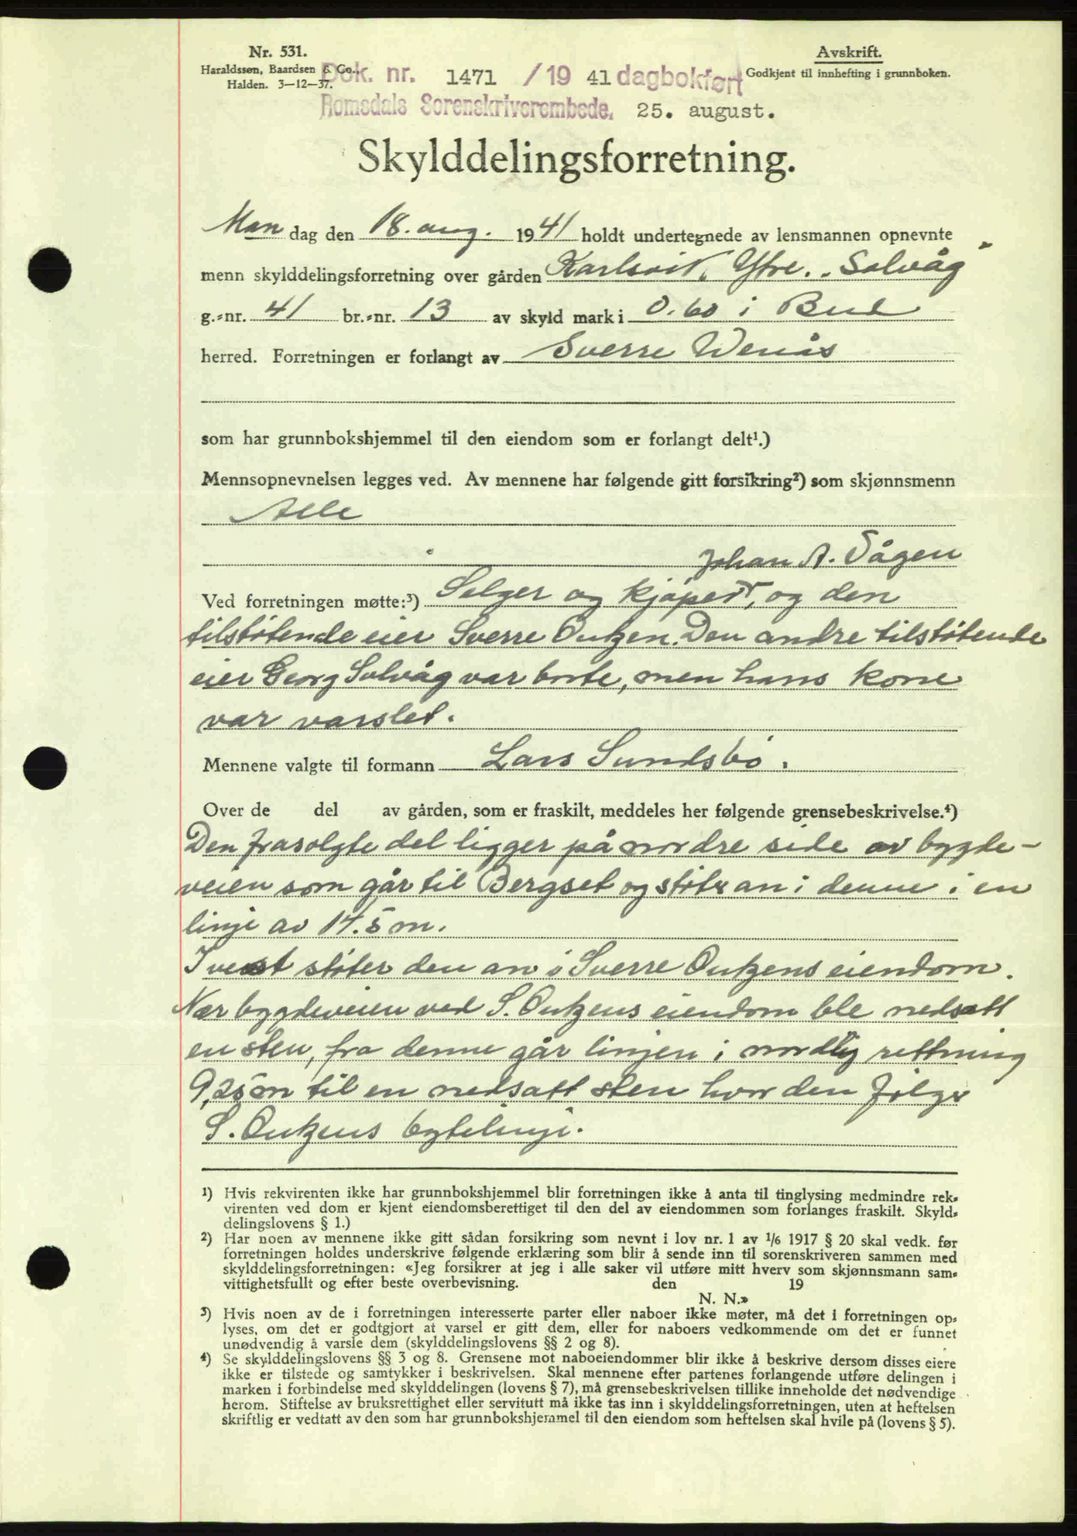 Nr. 531.
Haraldssen, Baardsen & Co.
Halden. 3-12-37.
Avskrift.
Godkjent til innhefting i grunnboken.
Dok. nr. 1471 /19 41 dagbokført
Romsdals Sorenskriverembede, 25. august.
Skylddelingsforretning.
Man dag den 18. aug. 1941 holdt undertegnede av lensmannen opnevnte
menn skylddelingsforretning over gården Karlsvik, Ytre. "Solvåg"
g.-nr. 41 br.-nr. 13 av skyld mark i 0.60 i Bud
herred. Forretningen er forlangt av Sverre Wenås
som har grunnbokshjemmel til den eiendom som er forlangt delt¹.)
Mennsopnevnelsen legges ved. Av mennene har følgende gitt forsikring²) som skjønnsmenn
Alle
Johan A. Vågen
Ved forretningen møtte:³) Selger og kjøper, og den
tilstøtende eier Sverre Outzen. Den andre tilstøtende
eier Georg Solvåg var borte, men hans kone
var varslet.
Mennene valgte til formann Lars Sundsbø.
Over de del av gården, som er fraskilt, meddeles her følgende grensebeskrivelse.⁴)
Den frasolgte del ligger på nordre side av bygde-
veien som går til Bergset og støter an i denne i en
linje av 14.5 m.
I vest støter den an i Sverre Outzens eiendom.
Nær bygdeveien ved S. Outzens eiendom ble nedsatt
en sten, fra denne går linjen i nordlig rettning
9,25 m til en nedsatt sten hvor den følger
S. Outzens bytelinje.
¹) Hvis rekvirenten ikke har grunnbokshjemmel blir forretningen ikke å anta til tinglysing medmindre rek-
virenten ved dom er kjent eiendomsberettiget til den del av eiendommen som forlanges fraskilt. Skyld-
delingslovens § 1.)
²) Har noen av mennene ikke gitt sådan forsikring som nevnt i lov nr. 1 av 1/6 1917 § 20 skal vedk. før
forretningen holdes underskrive følgende erklæring som blir å sende inn til sorenskriveren sammen med
skylddelingsforretningen: «Jeg forsikrer at jeg i alle saker vil utføre mitt hverv som skjønnsmann sam-
vittighetsfullt og efter beste overbevisning. den 19
N. N.»
³) Hvis noen av de i forretningen interesserte parter eller naboer ikke møter, må det i forretningen op-
lyses, om det er godtgjort at varsel er gitt dem, eller for naboers vedkommende om det er funnet
unødvendig å varsle dem (skylddelingslovens §§ 2 og 8).
⁴) Se skylddelingslovens §§ 3 og 8. Grensene mot naboeiendommer blir ikke å beskrive dersom disses eiere
ikke er tilstede og samtykker i beskrivelsen. Skal mennene efter partenes forlangende utføre delingen i
marken i forbindelse med skylddelingen (lovens § 7), må grensebeskrivelsen tillike inneholde det nødvendige
herom. Stiftelse av bruksrettighet eller servitutt må ikke tas inn i skylddelingsforretningen, uten at heftelsen
skriftlig er vedtatt av den som har grunnbokshjemmel til den eiendom som heftelsen skal hvile på (lovens § 5).